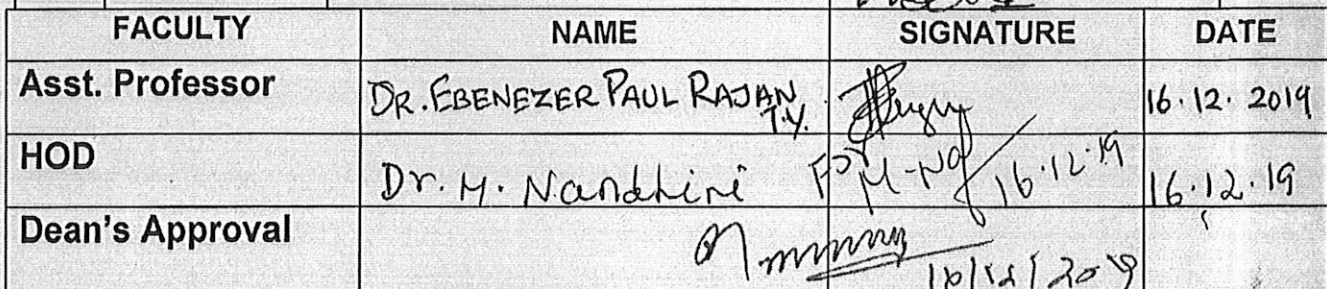 FACULTY NAME SIGNATURE DATE
Asst. Professor DR. EBENEZER PAUL RAJAN T.Y. 16.12.2019
HOD Dr. M. Nandhini For 16.12.19 16.12.19
Dean's Approval 16/12/2019